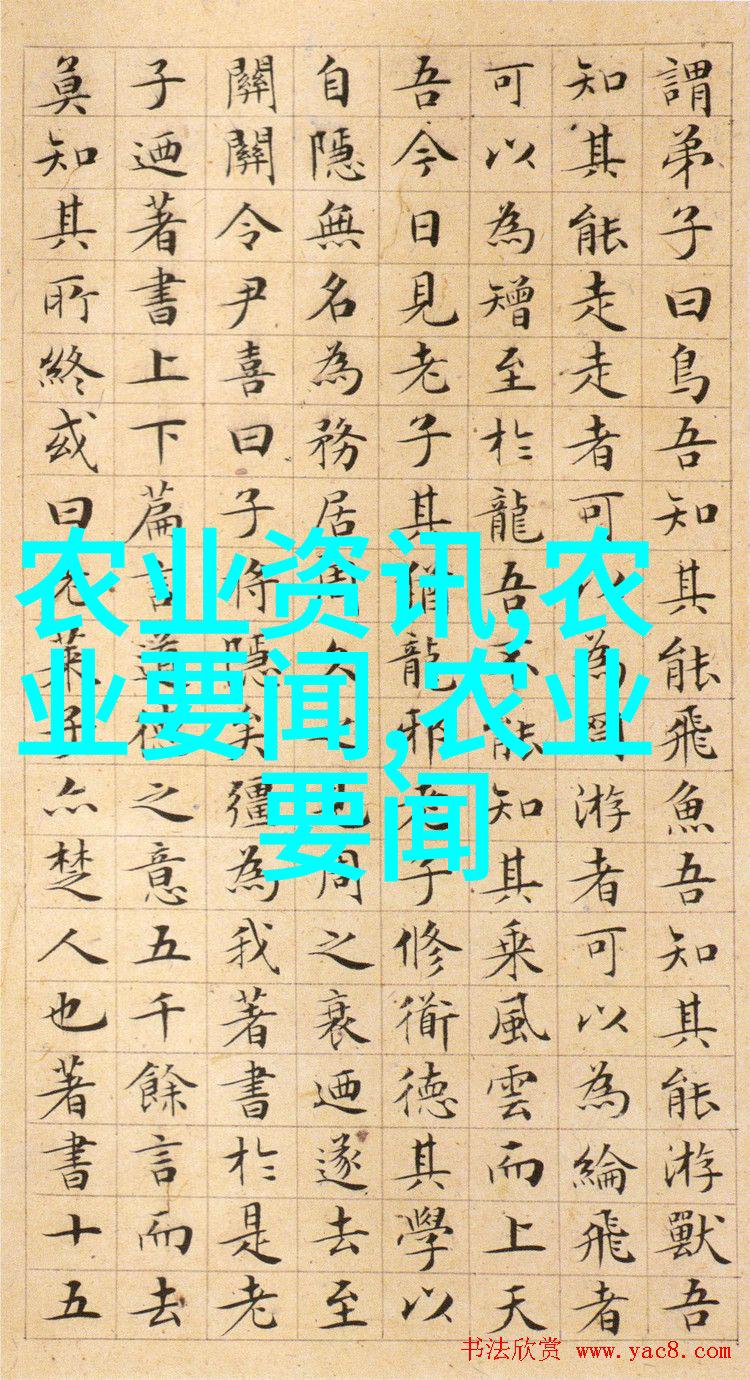 謂弟子曰鳥吾知其能飛魚吾知其能游獸吾
知其能走走者可以為罔游者可以為綸飛者
可以為矰至於龍吾不能知其乘風雲而上天
吾今日見老子其猶龍邪老子修衜德其學以
自隱無名為務居周久之見周之衰迺遂去至
關關令尹喜曰子將隱矣彊為我著書於是老
子迺著書上下篇言道德之意五千餘言而去
莫知其所終或曰老萊子亦楚人也著書十五
农业资讯,农
业要闻,农业
要闻
书法欣赏 www.yac8.com